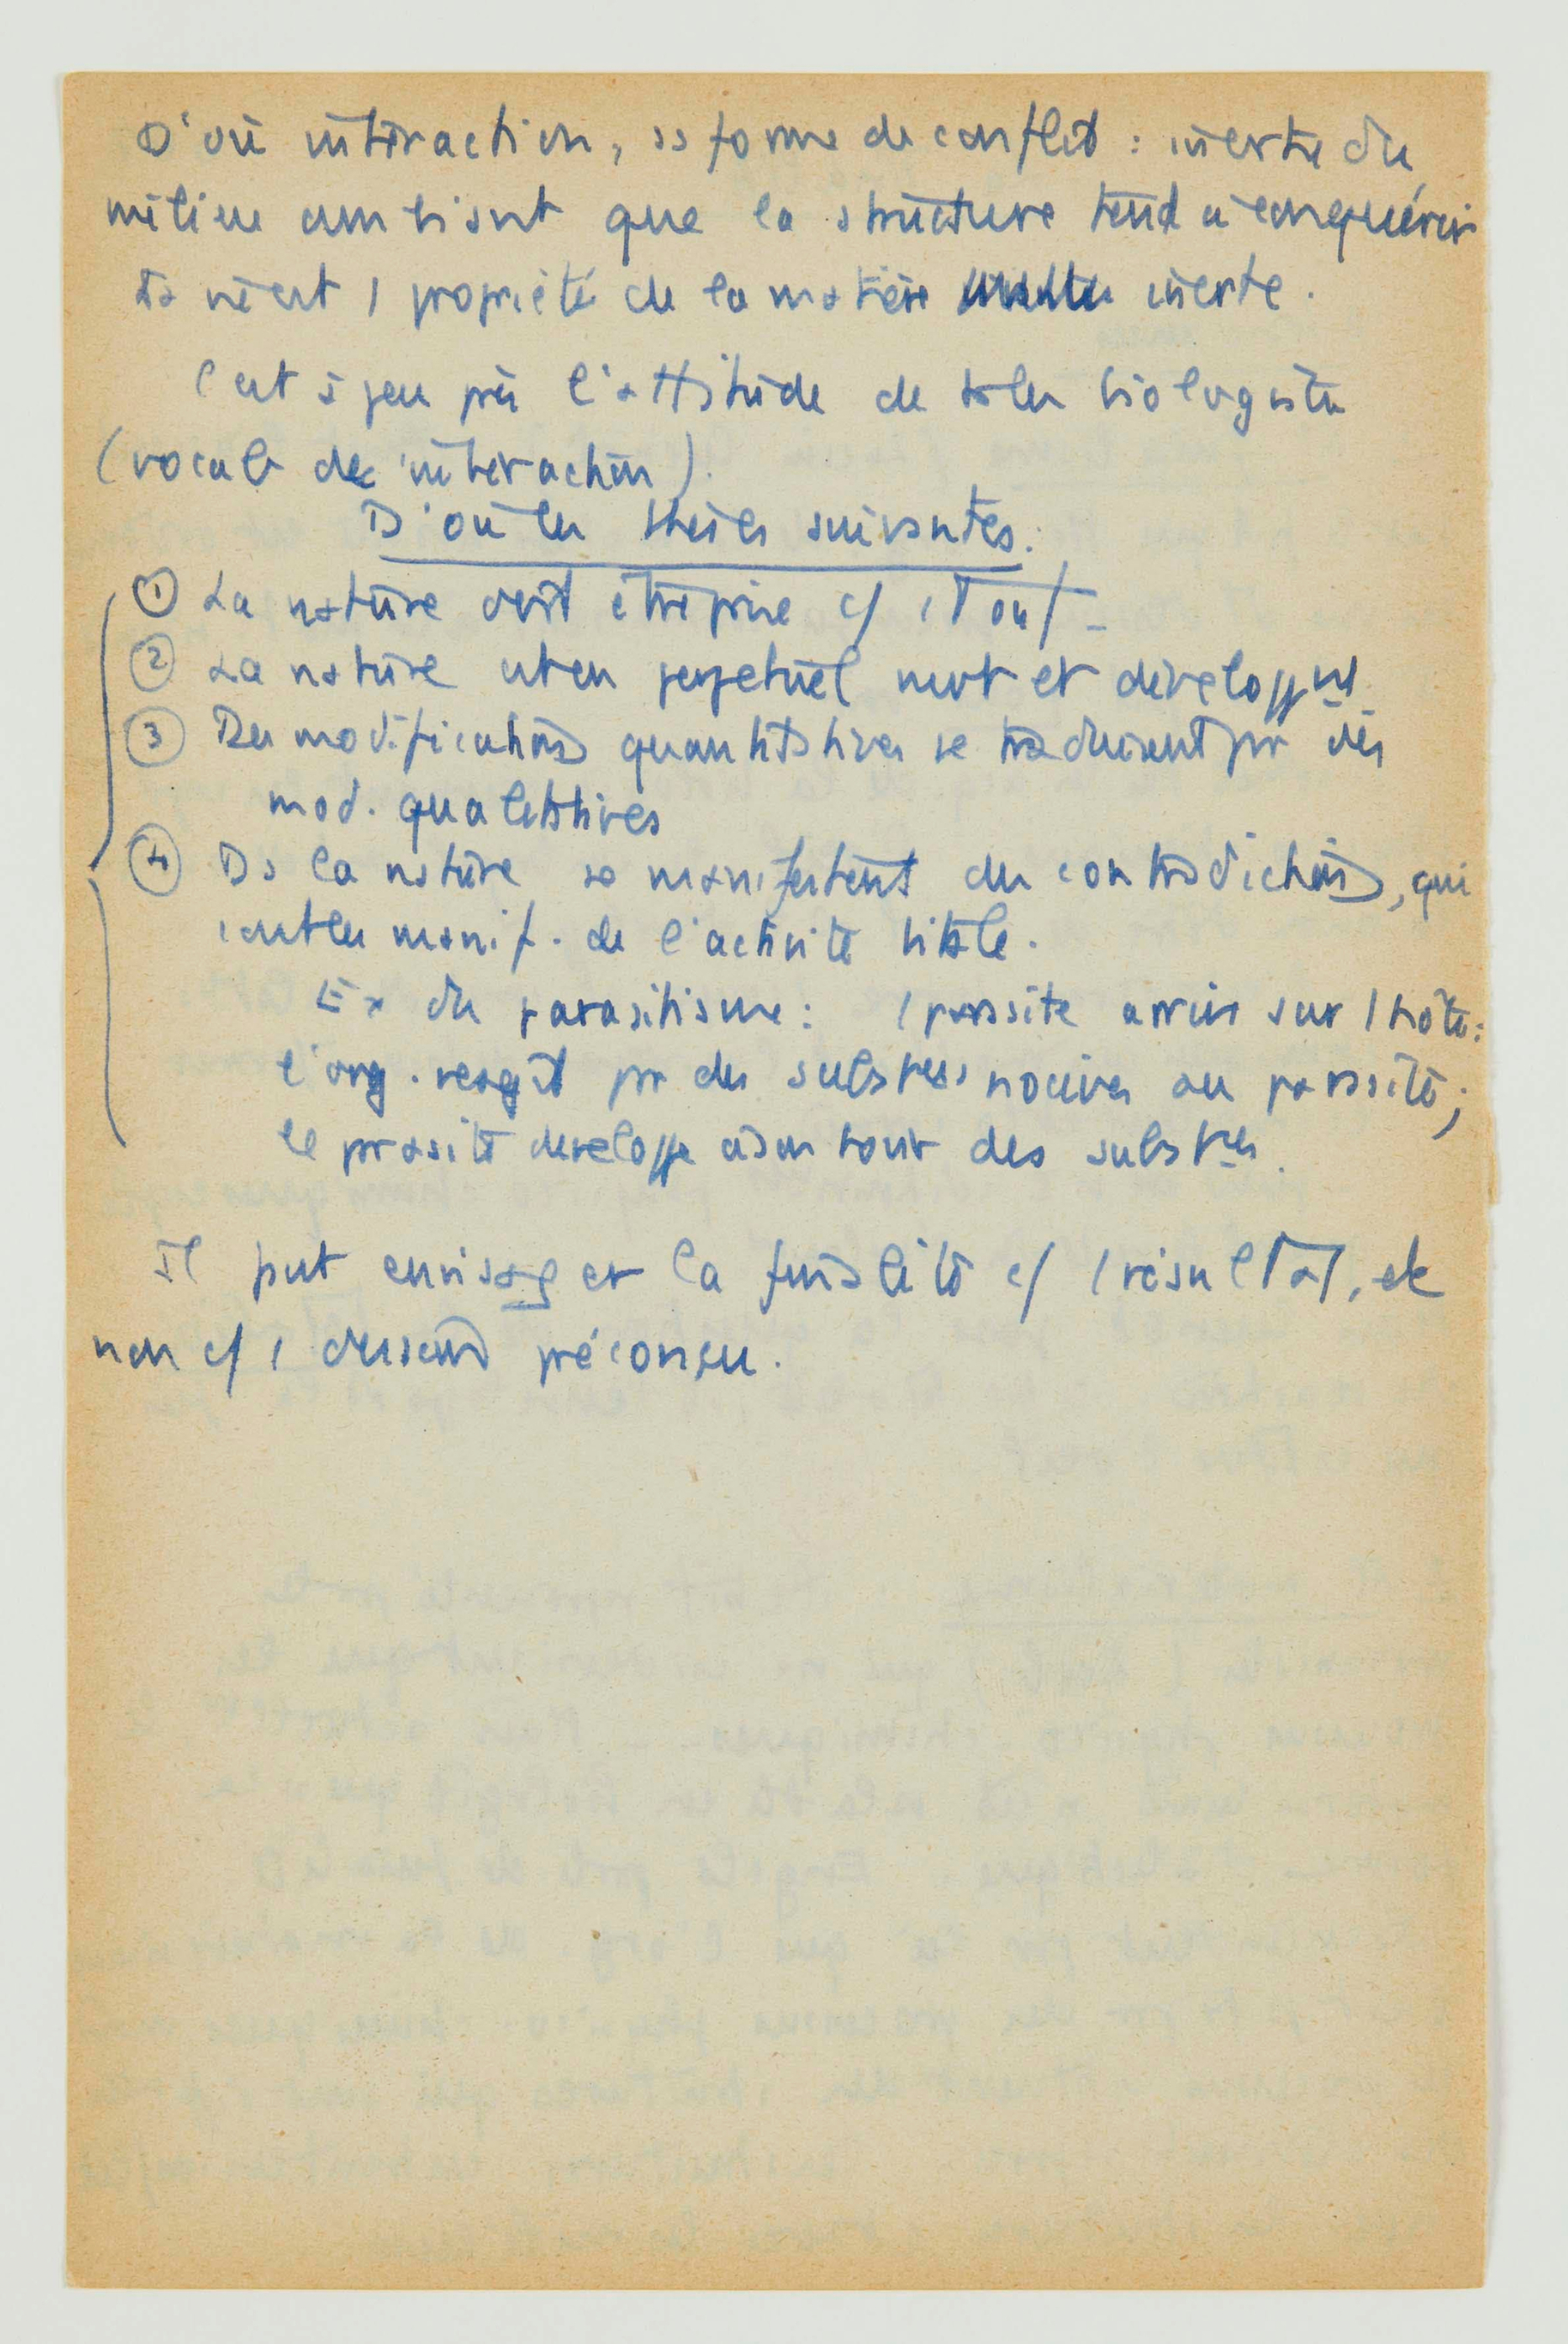 D'où interaction, ss forme de conflit : inertie du
milieu ambiant que la structure tend à conquérir
La vie est 1 propriété de la matière inerte.
C'est à peu près l'attitude de tous les biologistes
(vocab de interaction).
D'où les thèses suivantes :
① La nature doit être prise c/ 1 Tout -
② La nature est en perpétuel mvt et développnt
③ Des modifications quantitatives se traduisent pr des
mod. qualitatives
④ Ds la nature se manifestent des contradictions, qui
sont les manif. de l'activité vitale.
Ex du parasitisme : 1 parasite arrive sur 1 hôte :
l'org. réagit pr des substces nocives au parasite ;
le parasite développe à son tour des substces.
Il faut envisager la finalité c/ 1 résultat, et
non c/ 1 dessein préconçu.